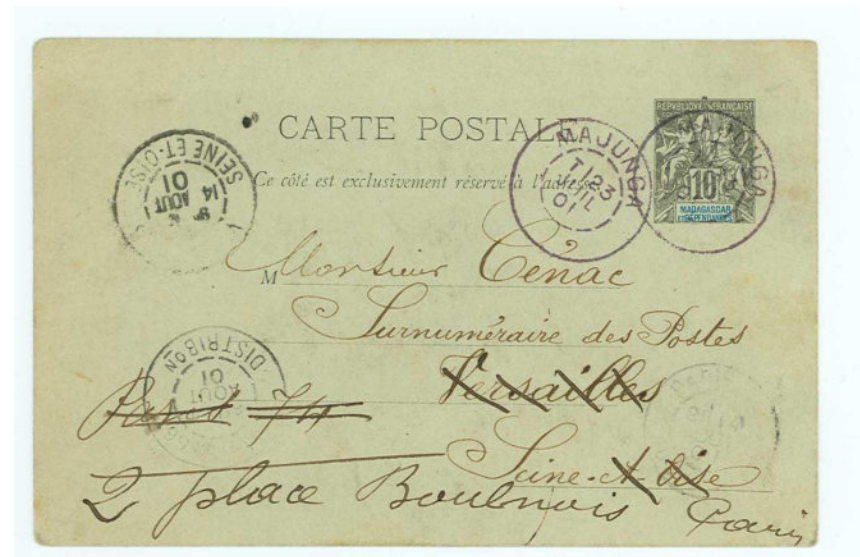 CARTE POSTALE
Ce côté est exclusivement réservé à l'adresse
REPUBLIQUE FRANÇAISE
10
MADAGASCAR
ET DÉPENDANCES
MAJUNGA
23
JUIL
01
MAJUNGA
SEINE-ET-OISE
14
AOUT
01
M Monsieur Cénac
Surnuméraire des Postes
Versailles
Seine-et-Oise
DISTRIBON
AOUT
01
PARIS
74
2 place Boulnois Paris